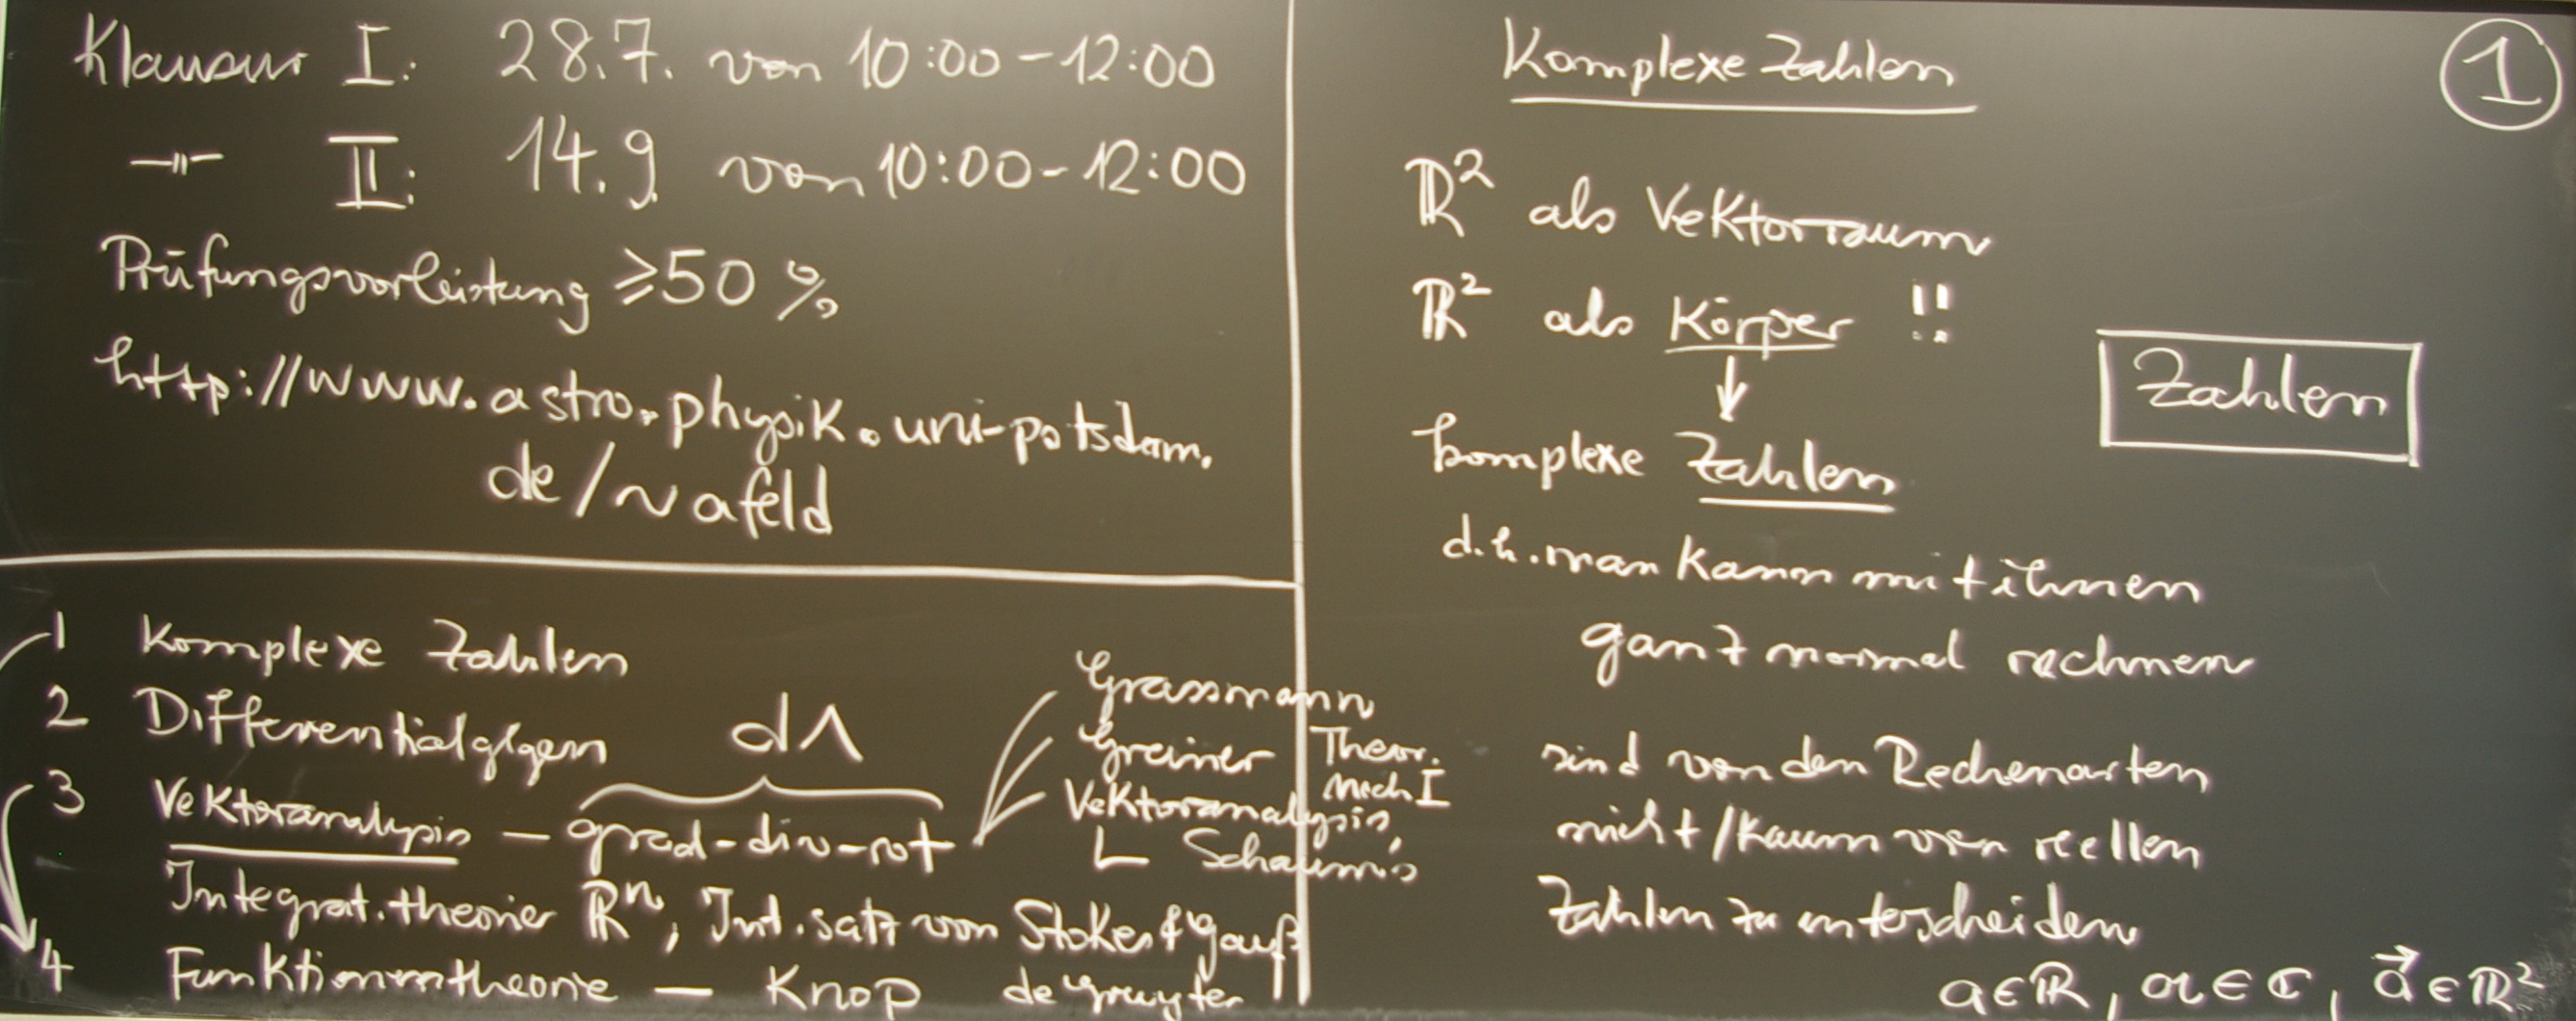 Klausur I: 28.7. von 10:00-12:00
-"- II: 14.9. von 10:00-12:00
Prüfungsvorleistung ≥50%
http://www.astro.physik.uni-potsdam.
de/~afeld
1 Komplexe Zahlen
2 Differentialglgen
3 Vektoranalysis - grad-div-rot
d∧
Grassmann
Greiner Theor.
Mech I
Vektoranalysis,
Schaum's
Integrat.theorie ℝⁿ, Int.satz von Stokes & Gauß
4 Funktionentheorie - Knop de Gruyter
Komplexe Zahlen
1
ℝ² als Vektorraum
ℝ² als Körper !!
↓
komplexe Zahlen
Zahlen
d.h. man kann mit ihnen
ganz normal rechnen
sind von den Rechenarten
nicht/kaum von reellen
Zahlen zu unterscheiden
a∈ℝ, α∈ℂ, a⃗∈ℝ²